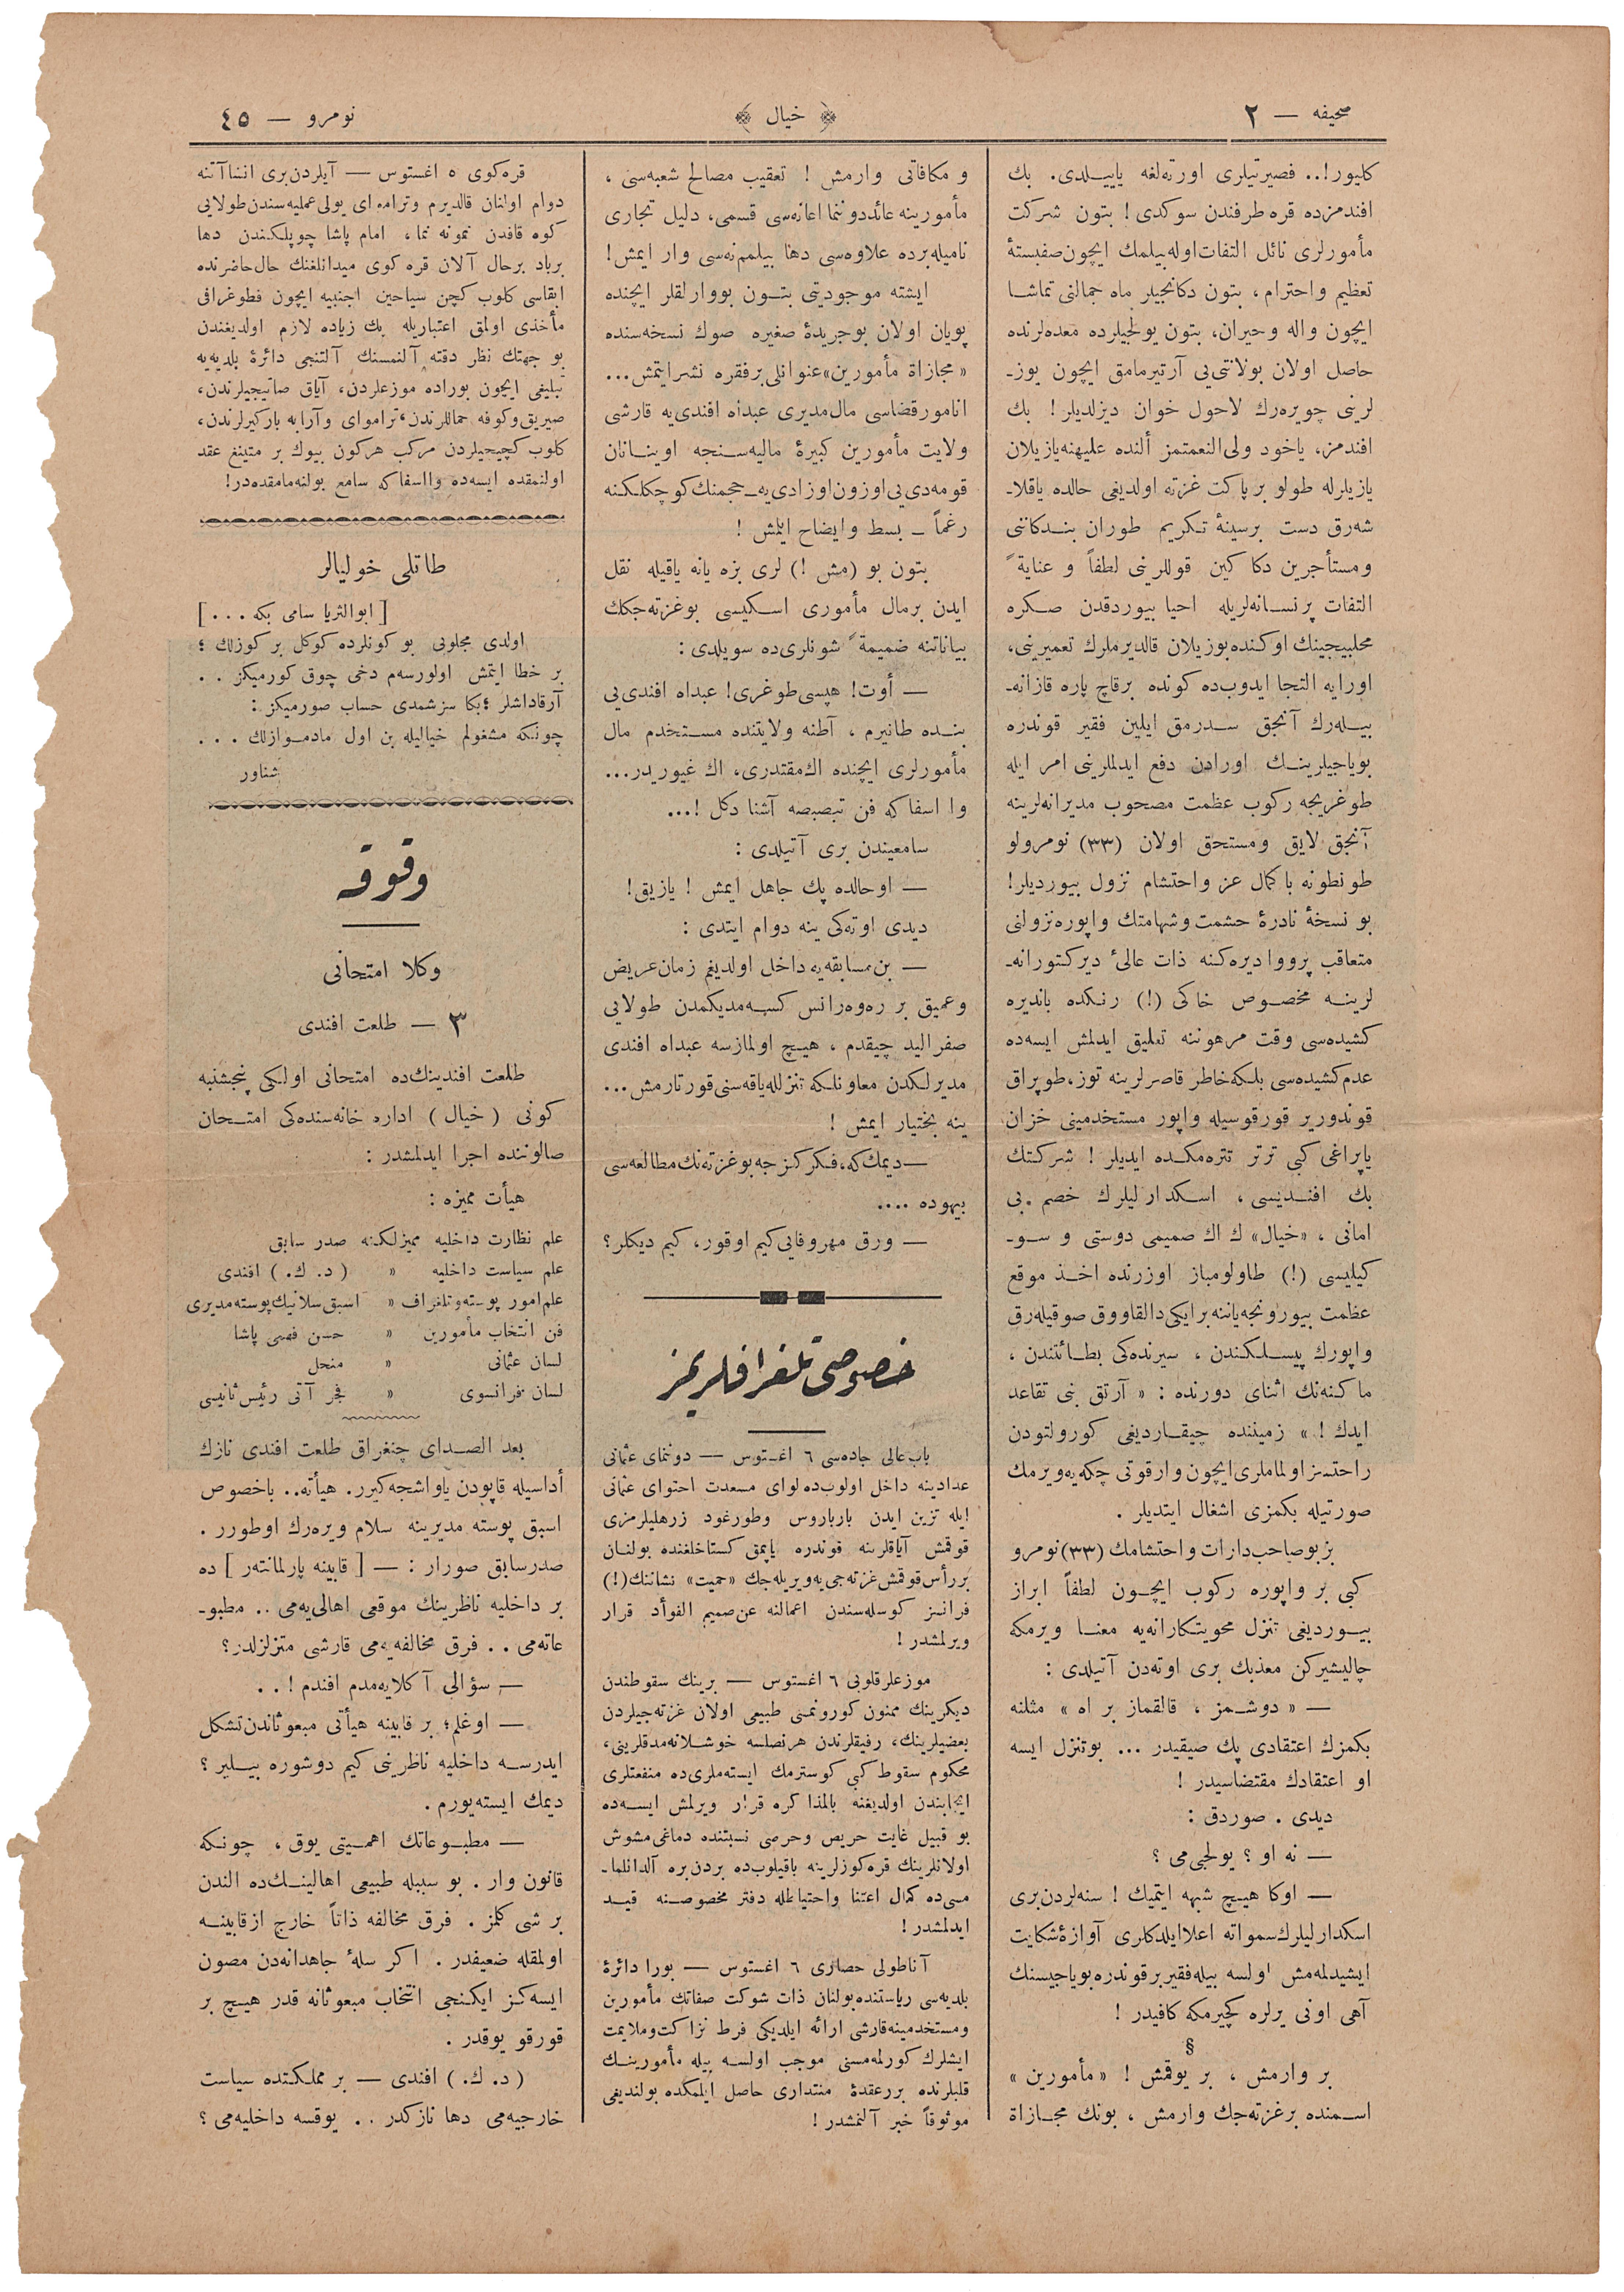 صحیفه — ٢
خیال
نومرو — ٤٥
كلیور!.. فصیرتیلری اورته‌لغه یاییـلدی. بك
افندمزده قره طرفندن سوكدی! بتون شركت
مأمورلری نائل التفات اوله‌بیلمك ایچون صفبستۀ
تعظیم واحترام، بتون دكانجیلر ماه جمالنی تماشـا
ایچون واله وحیران، بتون یولجیلرده معده‌لرنده
حاصل اولان بولانتی‌یی آرتیرمامق ایچون یوز-
لرینی چویره‌رك لاحول خوان دیزلدیلر! بك
افندمز، یاخود ولی‌النعمتمز ألنده علیهنه یازیلان
یازیلرله طولو بر پاكت غزته اولدیغی حالده یاقلا-
شه‌رق دست برسینۀ تـكریم طوران بنـدكاننی
ومستأجرین دكاكین قوللرینی لطفاً و عنایةً
التفات پرنسـانه‌لریله احیا بیوردقدن صـكره
محلبیجینك اوكنده بوزیلان قالدیرملرك تعمیرینی،
اورایه التجا ایدوب‌ده كونده برقاچ پاره قازانه-
بیـله‌رك آنجق سـدرمق ایلین فقیر قوندره
بویاجیلرینـك اورادن دفع ایدلملرینی امر ایله
طوغریجه ركوب عظمت مصحوب مدیرانه‌لرینه
آنجق لایق ومستحق اولان (٣٣) نومرولو
طونطونه باكمال عز واحتشام نزول بیوردیلر!
بو نسخۀ نادرۀ حشمت وشهامتك واپوره نزولنی
متعاقب پرووا دیره‌كنه ذات عالیٔ دیركتورانه-
لرینـه مخصـوص خاكی (!) رنـكده باندیره
كشیده‌سی وقت مرهوننه تعلیق ایدلمش ایسه‌ده
عدم كشیده‌سی بلكه خاطر قاصرلرینه توز، طوپراق
قوندوریر قورقوسیله واپور مستخدمینی خزان
یاپراغی كبی ترتر تتره‌مكـده ایدیلر! شركـتك
بك افنـدیسی، اسـكدارلیلرك خصم بی
امانی، «خیال» ك اك صمیمی دوستی و سـو-
كیلیسی (!) طاولومباز اوزرنده اخـذ موقع
عظمت بیورونجه یاننه برایكی دالقاووق صوقیله‌رق
واپورك پیسـلـكندن، سیرنده‌كی بطـائتندن،
ماكنه‌نك اثنای دورنده: «آرتق بنی تقاعد
ایدك!» زمیننده چیقـاردیغی كورولتودن
راحتسز اولماملری ایچون وارقوتی چكه‌یه‌ویرمك
صورتیله بكمزی اشغال ایتدیلر.
بزبوصاحب‌دارات واحتشامك (٣٣) نومرو
كبی بر واپوره ركوب ایچـون لطفاً ابراز
بیـوردیغی تنزل محویتـكارانه‌یه معنـا ویرمكه
چالیشیركن معذبك بری اوته‌دن آتیلدی:
— «دوشـمز، قالقماز بر اه» مثلنه
بكمزك اعتقادی پك صیقیدر... بوتنزل ایسه
او اعتقادك مقتضاسیدر!
دیدی. صوردق:
— نه او؟ یولجی‌می؟
— اوكا هیـچ شبهه ایتمیك! سنه‌لردن‌بری
اسكدارلیلرك سمواته اعلا ایلدكلری آوازۀ شكایت
ایشیدلمه‌مش اولسه بیله فقیر برقوندره بویاجیسنك
آهی اونی یرلره كچیرمكه كافیدر!
§
بر وارمش، بر یوقمش! «مأمورین»
اسـمنده برغزته‌جك وارمش، بونك مجـازاة
و مكافاتی وارمش! تعقیب مصالح شعبه‌سی،
مأمورینه عائد دونما اعانه‌سی قسمی، دلیل تجاری
نامیله برده علاوه‌سی دها بیلمم نه‌سی وار ایمش!
ایشته موجودیتی بتـون بووارلقلر ایچنده
پویان اولان بوجریدۀ صغیره صوك نسخه‌سنده
«مجازاة مأمورین» عنوانلی برفقره نشر ایتمش...
انامور قضاسی مال‌مدیری عبداه افندی‌یه قارشی
ولایت مأمورین كبیرۀ مالیه‌سـنجه اوینـانان
قومه‌دی‌یی اوزون اوزادی‌یه — حجمنك كوچكلكـنه
رغماً — بسط وایضاح ایلمش!
بتون بو (مش!) لری بزه یانه یاقیله نقل
ایدن برمال مأموری اسـكیسی بوغزته‌جكك
بیاناتنه ضمیمةً شونلری‌ده سویلدی:
— أوت! هپسی طوغری! عبداه افندی‌یی
بنـده طانیرم، آطنه ولایتنده مسـتخدم مال
مأمورلری ایچنده اك مقتدری، اك غیوریدر...
وا اسفاكه فن تبصبصه آشنا دكل!...
سامعیندن بری آتیلدی:
— اوحالده پك جاهل ایمش! یازیق!
دیدی اوته‌كی ینه دوام ایتدی:
— بن مسابقه‌یه داخل اولدیغم زمان عریض
وعمیق بر ره‌وه‌رانس كسـه‌مدیكمدن طولایی
صفرالید چیقدم، هیـچ اولمازسه عبداه افندی
مدیرلكدن معاونلكه تنزلله یاقه‌سنی قورتارمش...
ینه بختیار ایمش!
— دیمك‌كه، فكركزجه بوغزته‌نك مطالعه‌سی
بیهوده....
— ورق مهروفایی كیم اوقور، كیم دیكلر؟
خصوصی تلغرافلریمز
باب‌عالی جاده‌سی ٦ اغسـتوس — دونمای عثمانی
عدادینه داخل اولوب‌ده لوای مسعدت احتوای عثمانی
ایله تزین ایدن بارباروس وطورغود زرهلیلرمزی
قوقمش آیاقلرینه قوندره یاپمق كستاخلغنده بولنـان
بررأس قوقمش غزته‌جی‌یه ویریله‌جك «حمیت» نشاننك (!)
فرانسز كوسله‌سندن اعمالنه عن‌صمیم الفوأد قرار
ویرلمشدر!
موزعلر قلوبی ٦ اغستوس — برینك سقوطندن
دیكرینك ممنون كورونمسی طبیعی اولان غزته‌جیلردن
بعضیلرینك، رفیقلرندن هرنصلسه خوشـلانه‌مدقلرینی،
محكوم سقوط كبی كوسترمك ایسته‌ملری‌ده منفعتلری
ایجابندن اولدیغنه بالمذاكره قرار ویرلمش ایسـه‌ده
بو قبیل غایت حریص وحرصی نسبتنده دماغی مشوش
اولانلرینك قره‌كوزلرینه باقیلوب‌ده بردن‌بره آلدانلما-
سی‌ده كمال اعتنا واحتیاطله دفتر مخصوصـنه قیـد
ایدلمشدر!
آناطولی حصاری ٦ اغستوس — بورا دائرۀ
بلدیه‌سی ریاستنده بولنان ذات شوكت صفاتك مأمورین
ومستخدمینه قارشی ارائه ایلدیكی فرط نزاكت وملایمت
ایشلرك كورلمه‌مسنی موجب اولسـه بیله مأمورینـك
قلبلرنده بررعقدۀ منتداری حاصل ایلمكده بولندیغی
موثوقاً خبر آلنمشدر!
قره‌كوی ٥ اغستوس — آیلردن‌بری انشاآتنه
دوام اولنان قالدیرم وترامه‌ای یولی عملیه‌سندن طولایی
كوه قافدن نمونه نما، امام پاشا چوپلكـندن دها
برباد برحال آلان قره كوی میدانلغنك حال حاضرنده
ابقاسی كلوب كچن سیاحین اجنبیه ایچون فطوغرافی
مأخذی اولمق اعتباریله پك زیاده لازم اولدیغندن
بو جهتك نظر دقته آلنمسنك آلتنجی دائرۀ بلدیه‌یه
تبلیغی ایچون بوراده موزعلردن، آیاق صاتیجیلرندن،
صیریق وكوفه حماللرندن، تراموای وآرابه باركیرلرندن،
كلوب كچیجیلردن مركب هركون بیوك بر متینغ عقد
اولنمقده ایسه‌ده وااسفاكه سامع بولنه‌مامقده‌در!
طاتلی خولیالر
[ابوالثریا سامی بكه...]
اولدی مجلوبی بو كونلرده كوكل بر كوزلك؛
بر خطا ایتمش اولورسه‌م دخی چوق كورمیكز..
آرقاداشلر؛ بكا سز شمدی حساب صورمیكز:
چونكه مشغولم خیالیله بن اول مادموازلك...
شناور
وقوقه
وكلا امتحانی
٣ — طلعت افندی
طلعت افندینك‌ده امتحانی اولكی پنجشنبه
كونی (خیال) اداره خانه‌سنده‌كی امتـحان
صالوننده اجرا ایدلمشدر:
هیأت ممیزه:
علم نظارت داخلیه ممیزلكـنه صدر سابق
علم سیاست داخلیه » (د. ك.) افندی
علم امور پوسته وتلغراف » اسبق سلانیك پوسته مدیری
فن انتخاب مأمورین » حسن فهمی پاشا
لسان عثمانی » منحل
لسان فرانسوی » فجر آتی رئیس ثانیسی
بعد الصـدای چنغراق طلعت افندی نازك
أداسیله قاپودن یاواشجه كیرر. هیأته.. باخصوص
اسبق پوسته مدیرینه سلام ویره‌رك اوطورر.
صدرسابق صورار: — [قابینه پارلمانته‌ر] ده
بر داخلیه ناظرینك موقعی اهالی‌یه‌می.. مطبو-
عاته‌می.. فرق مخالفه‌یه‌می قارشی متزلزلدر؟
— سؤالی آكلایه‌مدم افندم!..
— اوغلم؛ بر قابینه هیأتی مبعوثاندن تشكل
ایدرسـه داخلیه ناظرینی كیم دوشوره بیـلیر؟
دیمك ایسته‌یورم.
— مطبـوعاتك اهمـیتی یوق، چونـكه
قانون وار. بو سببله طبیعی اهالینـك‌ده الندن
بر شی كلمز. فرق مخالفه ذاتاً خارج از قابینـه
اولمقله ضعیفدر. اكر سلۀ جاهدانه‌دن مصون
ایسه‌كـز ایكـنجی انتخاب مبعوثانه قدر هیـچ بر
قورقو یوقدر.
(د. ك.) افندی — بر مملكـتده سیاست
خارجیه‌می دها نازكدر.. یوقسه داخلیه‌می؟